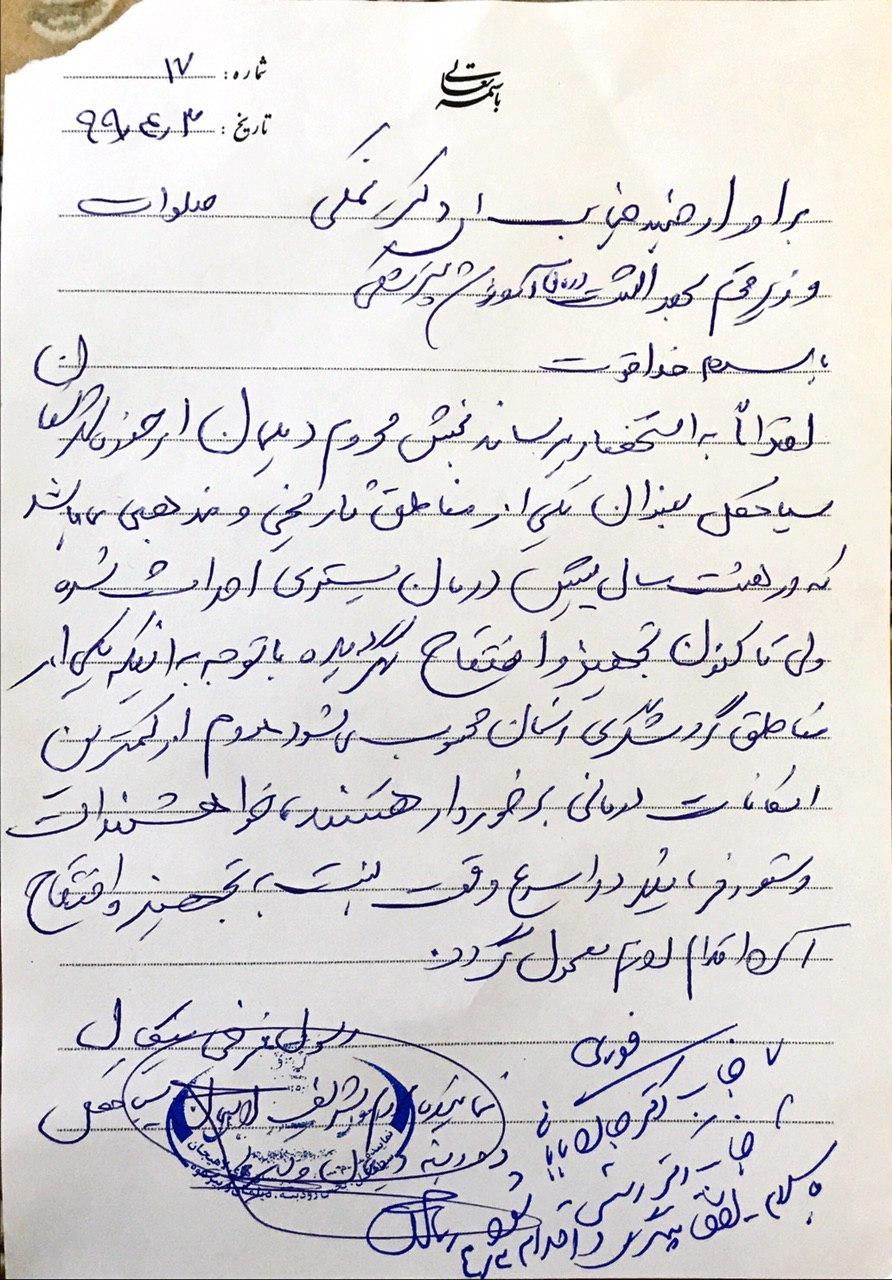 باسمه تعالی
شماره: ۱۷
تاریخ: ۹۹٫۴٫۳
برادر ارجمند جناب آقای دکتر نمکی
صلوات
وزیر محترم بهداشت درمان آموزش پزشکی
با سلام خداقوت
لطفاً به استحضار می‌رساند بخش محروم دیلمان از حوزه شهرستان
سیاهکل بعنوان یکی از مناطق تاریخی و مذهبی می‌باشد
که در هشت سال پیش درمان بستری احداث شده
ولی تا کنون تجهیز و افتتاح نگردیده با توجه به اینکه یکی از
مناطق گردشگری استان محسوب میشود مردم از کمترین
امکانات درمانی برخوردار هستند، خواهشمند است
دستور فرمایید در اسرع وقت نسبت به تجهیز و افتتاح
آن اقدام لازم معمول گردد.
رسول فرخی میکال
نماینده مردم شریف لاهیجان سیاهکل
رودبنه دیلمان و
فوری
جناب دکتر جان بابایی
جناب دکتر رشتی
سلام لطفاً پیگیری و اقدام